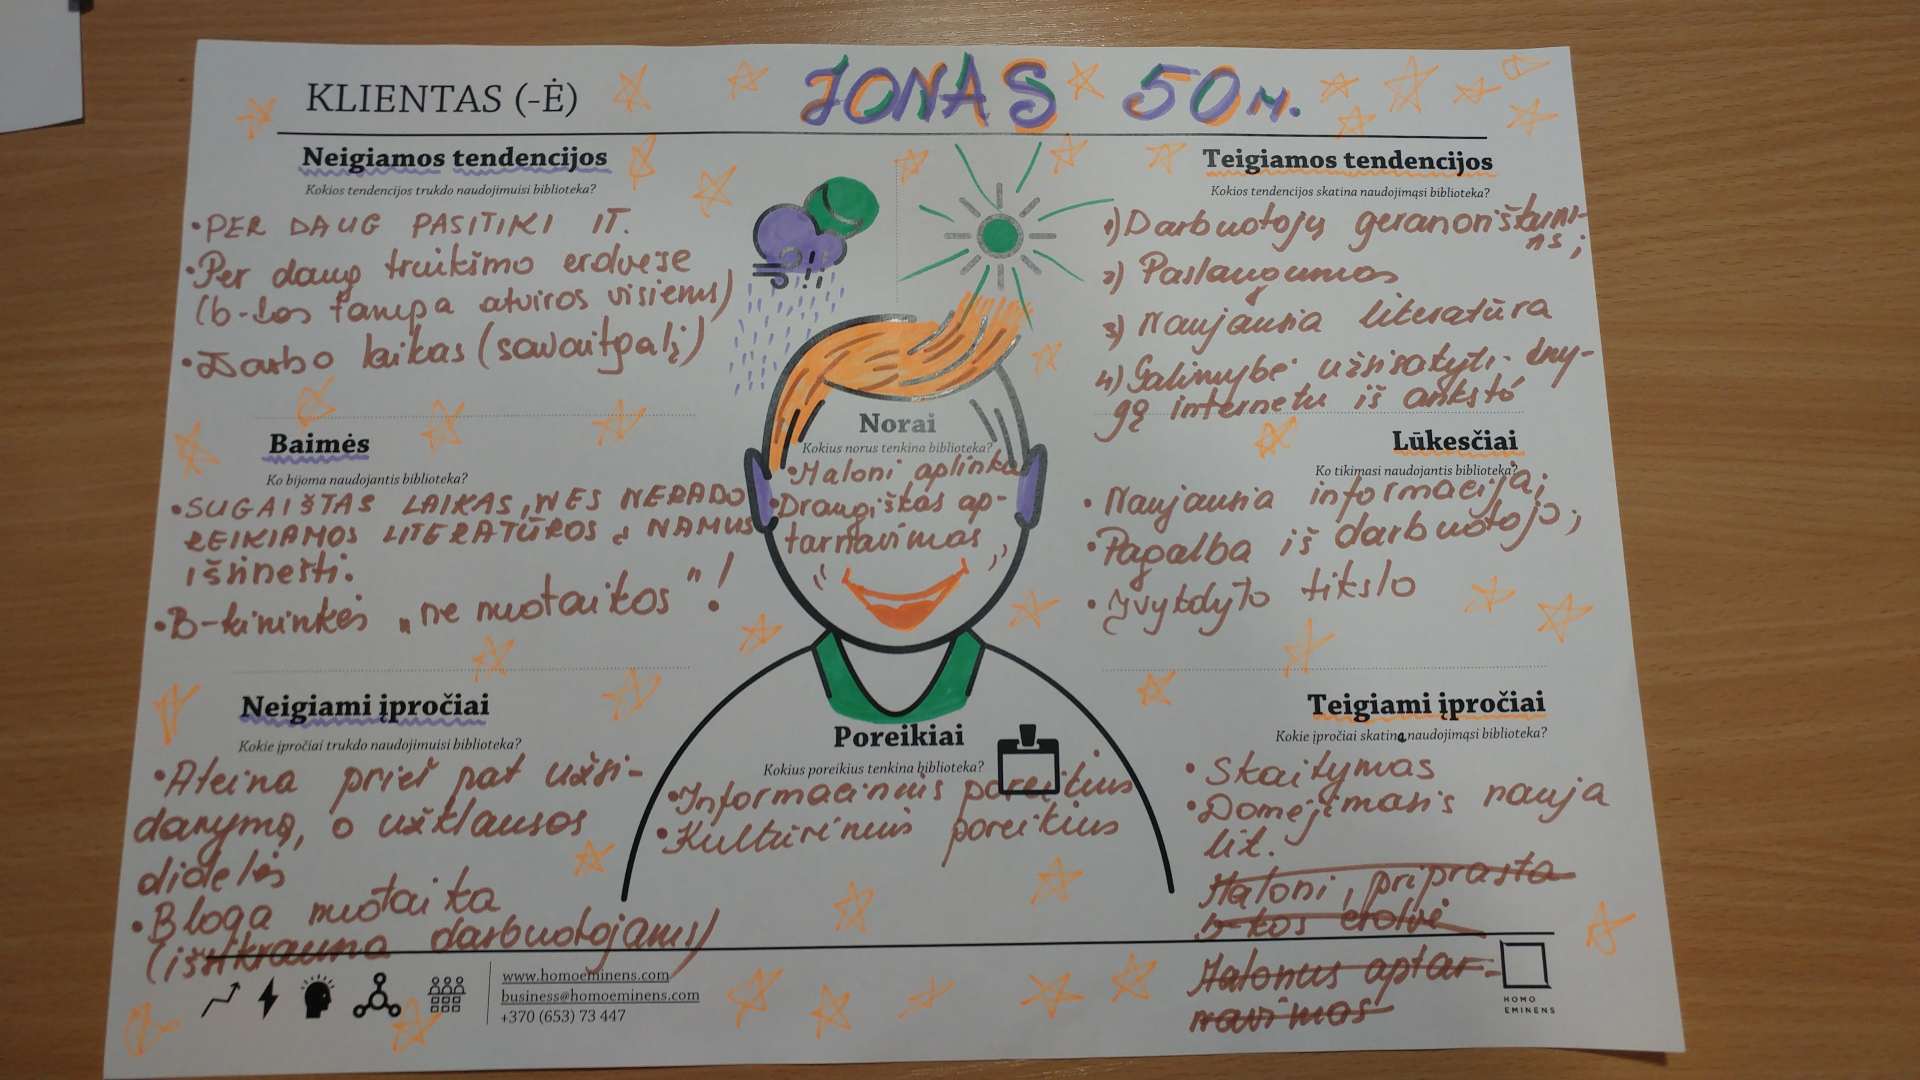 KLIENTAS (-Ė)
JONAS 50 m.
Neigiamos tendencijos
Kokios tendencijos trukdo naudojimuisi biblioteka?
• PER DAUG PASITIKI IT.
• Per daug triukšmo erdvėse
(b-kos tampa atviros visiems)
• Darbo laikas (savaitgalį)
Teigiamos tendencijos
Kokios tendencijos skatina naudojimąsi biblioteka?
1) Darbuotojų geranoriškumas;
2) Paslaugumas
3) Naujausia literatūra
4) Galimybė užsisakyti kny-
gą internetu iš anksto
Baimės
Ko bijoma naudojantis biblioteka?
• SUGAIŠTAS LAIKAS, NES NERADO
REIKIAMOS LITERATŪROS Į NAMUS
išsinešti.
• B-kininkės „ne nuotaikos"!
Norai
Kokius norus tenkina biblioteka?
• Maloni aplinka
• Draugiškas ap-
tarnavimas
Lūkesčiai
Ko tikimasi naudojantis biblioteka?
• Naujausia informacija;
• Pagalba iš darbuotojo;
• Įvykdyto tikslo
Neigiami įpročiai
Kokie įpročiai trukdo naudojimuisi biblioteka?
• Ateina prieš pat užsi-
darymą, o užklausos
didelės
• Bloga nuotaika
(išsikrauna darbuotojams)
Poreikiai
Kokius poreikius tenkina biblioteka?
• Informacinius poreikius
• Kultūrinius poreikius
Teigiami įpročiai
Kokie įpročiai skatina naudojimąsi biblioteka?
• Skaitymas
• Domėjimasis nauja
lit.
Maloni, priprasta
b-kos erdvė
Malonus aptar-
navimas
www.homoeminens.com
business@homoeminens.com
+370 (653) 73 447
HOMO
EMINENS